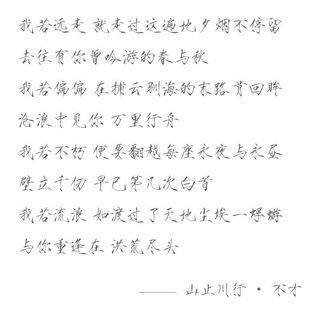 我若远走 就走过这遍地夕烟不停留
去往有你曾吟游的春与秋
我若偏偏 在捕云驯海的末路背回眸
沧浪中见你 万里行舟
我若不朽 便要翻越每座永夜与永昼
壁立千仞 早已第几次白首
我若流浪 如渡过了天地尘埃一蜉蝣
与你重逢在 洪荒尽头
—— 山止川行 · 不才